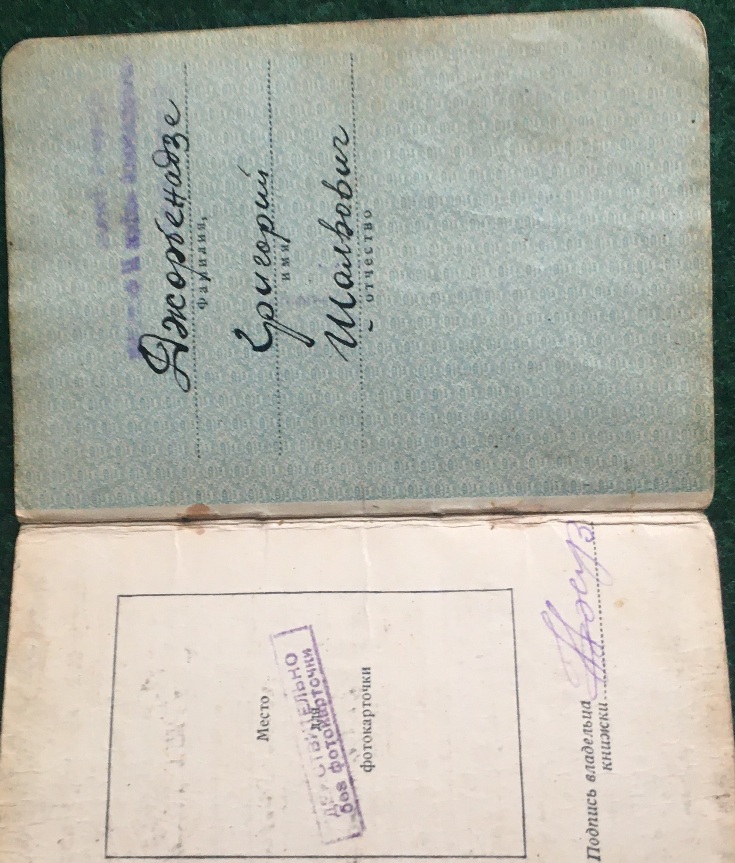 Джорбенадзе
Фамилия,
Григорий
имя,
Шалвович
отчество
Место
для
фотокарточки
ДЕЙСТВИТЕЛЬНО
без фотокарточки
Подпись владельца
книжки